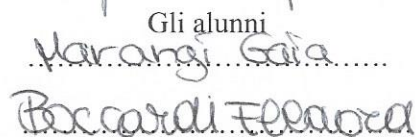 Gli alunni
Marangi Gaia
Boccardi Eleaora